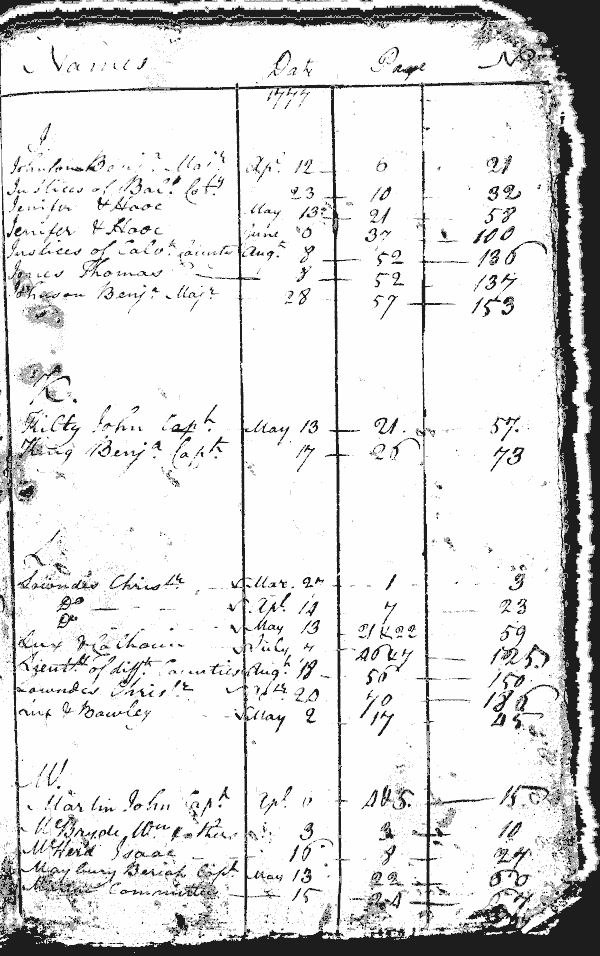 Names Date Page No
1777
J
Johnson Benja Majr Apl 12 6 21
Justices of Balt Coty 23 10 32
Jenifer & Hooe May 13 21 58
Jenifer & Hooe June 6 37 100
Justices of Calvt County Augt 8 52 136
Jones Thomas 8 52 137
Johnson Benja Majr 28 57 153
K.
Kilty John Capt May 13 21. 57.
King Benja Capt 17 26 73
L
Lowndes Christr Mar. 27 1 3
Do Apl. 14 7 23
Do May 13 21 & 22 59
Lux & Calhoun July 7 46 47 125
Lieuts of difft Counties Augt 18 56 150
Lowndes Christr 20 70 186
Lux & Bowley May 2 17 45
M
Martin John Capt Apl 6 4 & 5 15
McBryde Wm & others 3 3 10
McHerd Isaac 16 8 24
Maybury Beriah Capt May 13 22 60
Committee 15 24 67